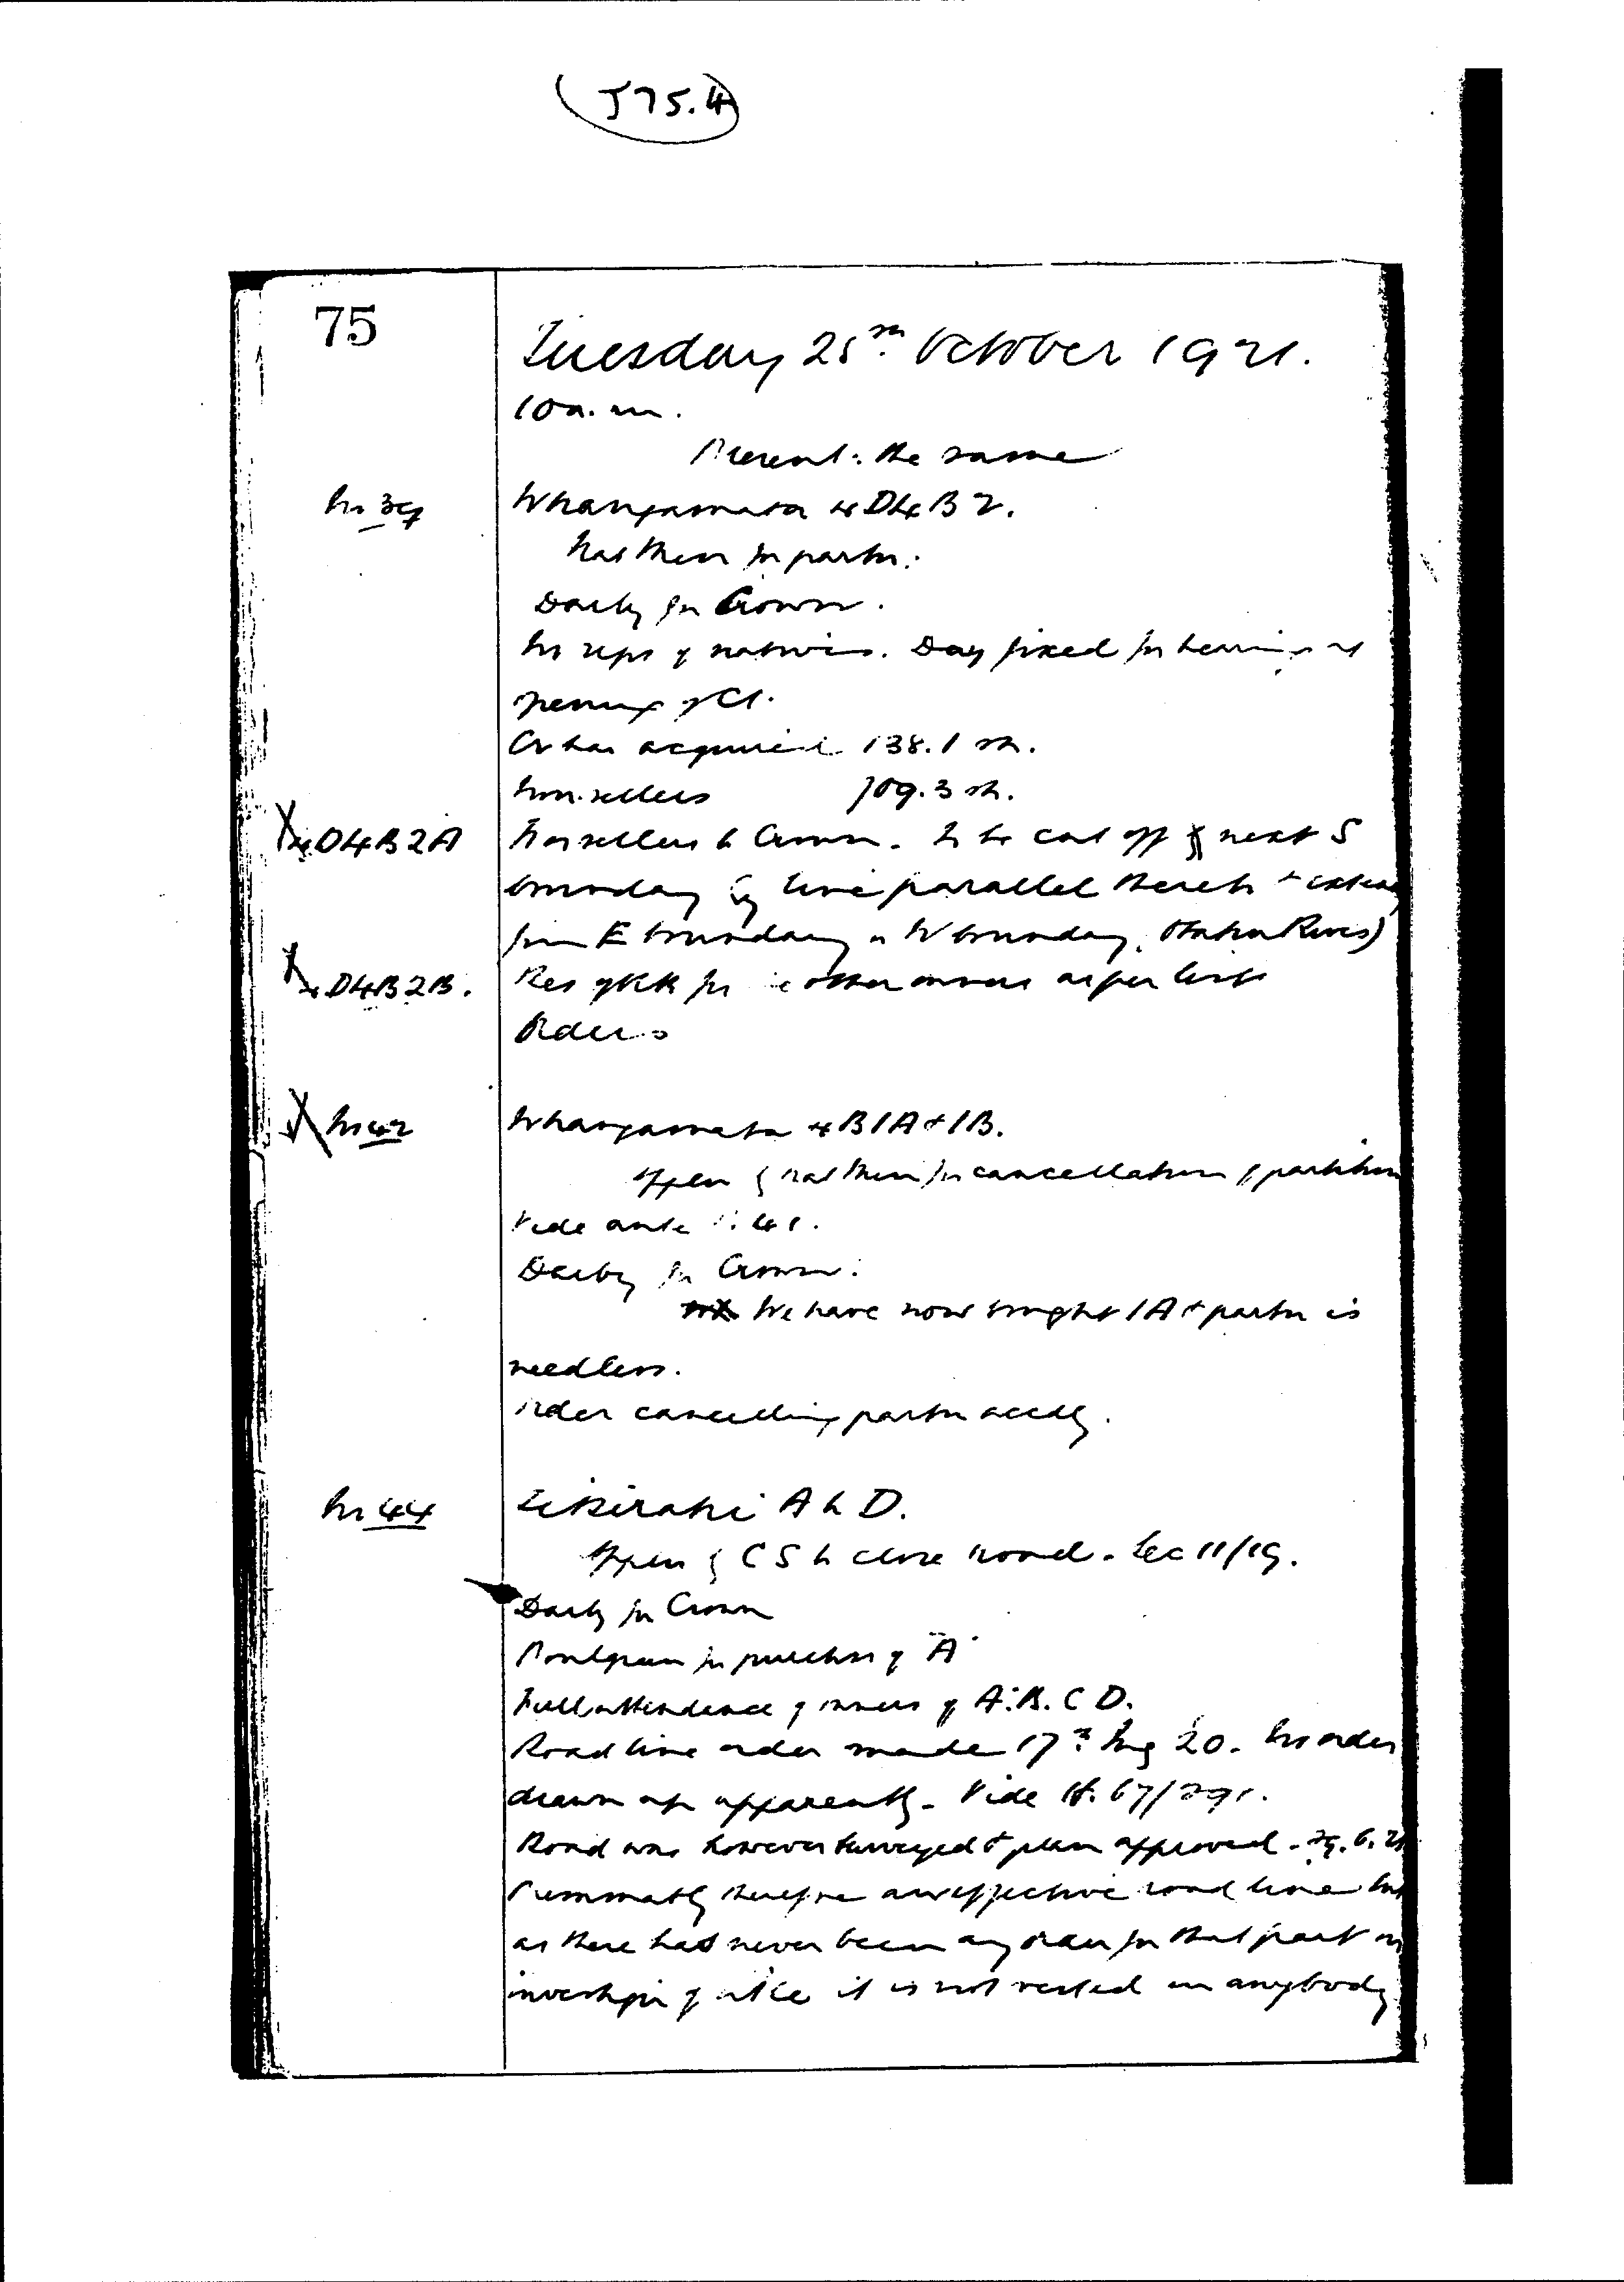 J 75.4
75
Tuesday 25th October 1921.
10 a.m.
Present: the same
No 39
Whangamata 4D4B2.
Nat Min for partn.
Darby for Crown.
No reps of natives. Day fixed for hearing at
opening of Ct.
Cr has acquired 138.1 sh.
Non-sellers 109.3 sh.
4D4B2A
Non sellers to Crown. To be cut off next S
boundary by line parallel thereto +
from E boundary to W boundary. Otahu River)
4D4B2B.
Res of Bk for the other owners as per list
Orders
No 42
Whangamata 4B1A + 1B.
Appln of Nat Min for cancellation of partition
Vide ante P. 41.
Darby for Crown.
We have now bought 1A + partn is
needless.
Order cancelling partn accdly.
No 44
A to D.
Appln of CS to close road. Sec 11/19.
Darby for Crown
for purchsr of "A"
Full attendance of owners of A. B. C D.
Road line order made 17th Aug 20. No order
drawn up apparently. Vide H. 67/291.
Road was however surveyed + plan approved. 29. 6. 21
Presumably therefore an effective road line but
as there had never been any order for that part on
investign of title it is not vested in anybody